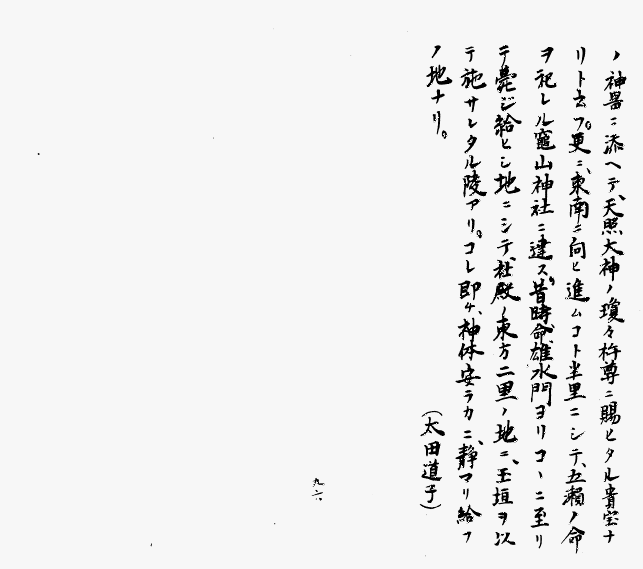 ノ神器ニ添ヘテ、天照大神ノ瓊々杵尊ニ賜ヒタル貴宝ナ
リト云フ。更ニ、東南ニ向ヒ進ムコト半里ニシテ、五瀬ノ命
ヲ祀レル竈山神社ニ達ス。昔時命、雄水門ヨリコヽニ至リ
テ薨ジ給ヒシ地ニシテ、社殿ノ東方二里ノ地ニ、玉垣ヲ以
テ施サレタル陵アリ。コレ即チ、神体安ラカニ、静マリ給フ
ノ地ナリ。
(太田道子)
九六